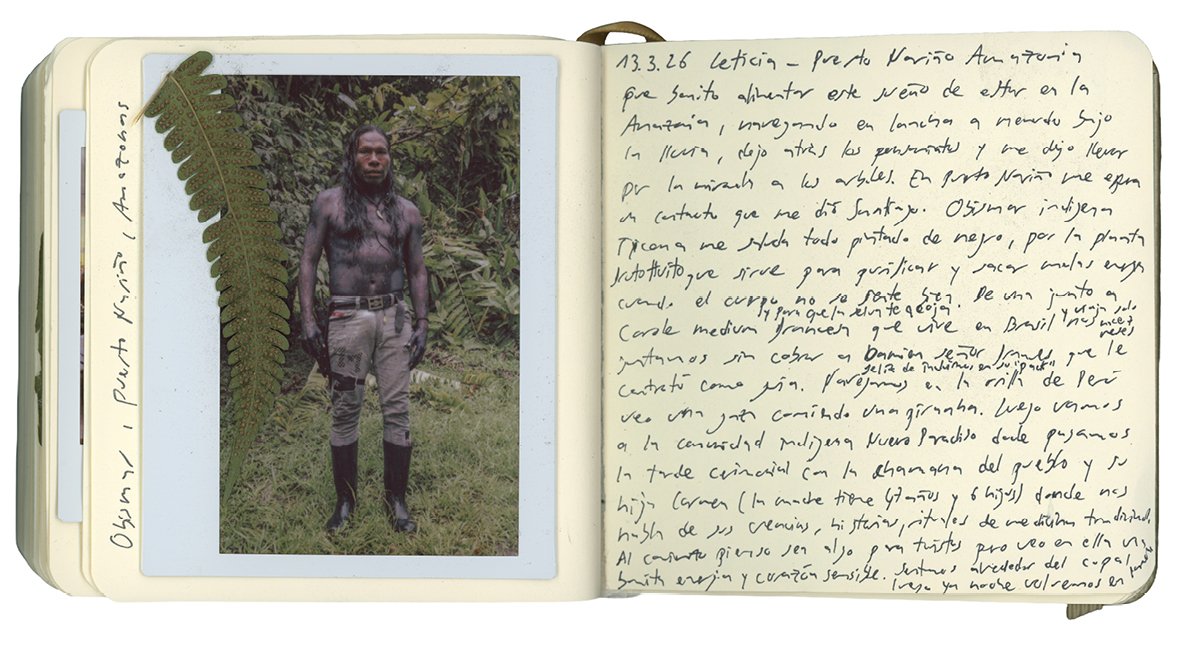 Obsimar, Puerto Nariño, Amazonas
13.3.26 Leticia - Puerto Nariño Amazonia
que bonito alimentar este sueño de estar en la
Amazonia, navegando en lancha a menudo bajo
la lluvia, dejo atrás los pensamientos y me dejo llevar
por la mirada a los arboles. En Puerto Nariño me espera
un contacto que me dió Santiago. Obsimar indigena
Ticuna me saluda todo pintado de negro, por la planta
que sirve para purificar y sacar malas energ
cuando el cuerpo no se siente bien. De una junto a
y para que la selva te acoja
Carole medium francesa que vive en Brasil y viaja solo
juntamos sin cobrar a Damien señor frances que le
feliz de incluirnos en su "pack"
contrató como guia. Navegamos en la orilla de Perú
veo una garza comiendo una piranha. Luego vamos
a la comunidad indigena Nuevo Paradiso donde pasamos
la tarde ceremonial con la chamana del pueblo y su
hija Carmen (la madre tiene 47 años y 6 hijos) donde nos
habla de sus creencias, historias, rituales de medicina tradicional.
Al comienzo pienso sea algo para turistas pero veo en ella una
bonita energia y corazón sensible. Sentamos alrededor del copal
luego ya noche volvemos en